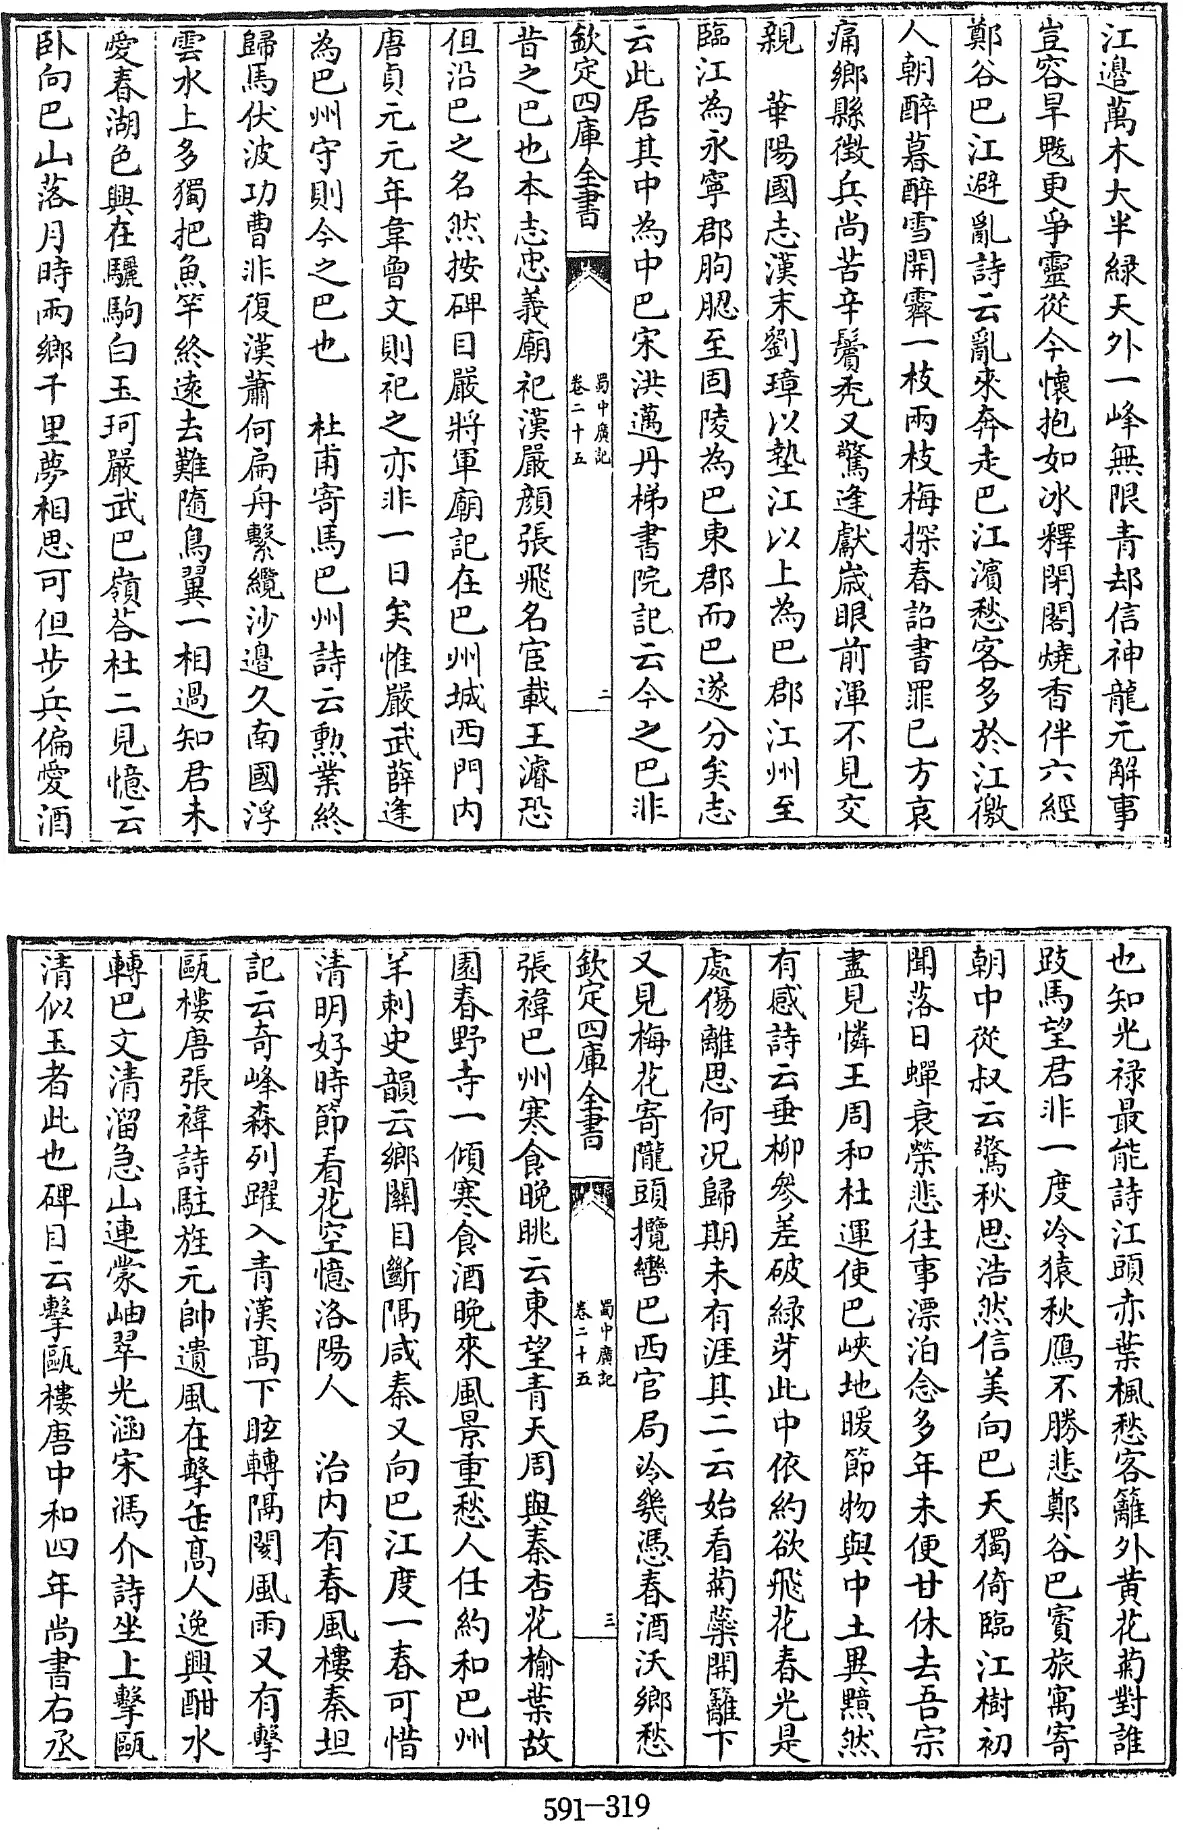 江邉萬木大半緑天外一峰無限青却信神龍元解事
豈容旱魃更爭靈從今懷抱如冰釋閉閣燒香伴六經
鄭谷巴江避亂詩云亂來奔走巴江濱愁客多於江徼
人朝醉暮醉雪開霽一枝兩枝梅探春詔書罪已方哀
痛鄉縣徴兵尚苦辛鬢秃又驚逢獻嵗眼前渾不見交
親　華陽國志漢末劉璋以墊江以上為巴郡江州至
臨江為永寧郡朐䏰至固陵為巴東郡而巴遂分矣志
云此居其中為中巴宋洪邁丹梯書院記云今之巴非
欽定四庫全書
蜀中廣記
卷二十五
二
昔之巴也本志忠義廟祀漢嚴顔張飛名宦載王濬恐
但沿巴之名然按碑目嚴將軍廟記在巴州城西門内
唐貞元元年韋曾文則祀之亦非一日矣惟嚴武薛逢
為巴州守則今之巴也　杜甫寄馬巴州詩云勲業終
歸馬伏波功曹非復漢蕭何扁舟繫纜沙邉久南國浮
雲水上多獨把魚竿終逺去難隨鳥翼一相過知君未
愛春湖色興在驪駒白玉珂嚴武巴嶺荅杜二見憶云
卧向巴山落月時兩鄉千里夢相思可但步兵偏愛酒
也知光禄最能詩江頭赤葉楓愁客籬外黄花菊對誰
跂馬望君非一度冷猿秋鴈不勝悲鄭谷巴賓旅寓寄
朝中從叔云驚秋思浩然信美向巴天獨倚臨江樹初
聞落日蟬衰榮悲往事漂泊念多年未便甘休去吾宗
盡見憐王周和杜運使巴峽地暖節物與中土異黯然
有感詩云垂柳參差破緑芽此中依約欲飛花春光是
處傷離思何況歸期未有涯其二云始看菊蘂開籬下
又見梅花寄隴頭攬轡巴西官局冷幾憑春酒沃鄉愁
欽定四庫全書
蜀中廣記
卷二十五
三
張禕巴州寒食晚眺云東望青天周與秦杏花榆葉故
園春野寺一傾寒食酒晚來風景重愁人任約和巴州
羊刺史韻云鄉關目斷隔咸秦又向巴江度一春可惜
清明好時節看花空憶洛陽人　治内有春風樓秦坦
記云奇峰森列躍入青漢髙下眩轉隔閡風雨又有擊
甌樓唐張禕詩駐旌元帥遺風在擊缶髙人逸興酣水
轉巴文清溜急山連蒙岫翠光涵宋馮介詩坐上擊甌
清似玉者此也碑目云擊甌樓唐中和四年尚書右丞
591-319